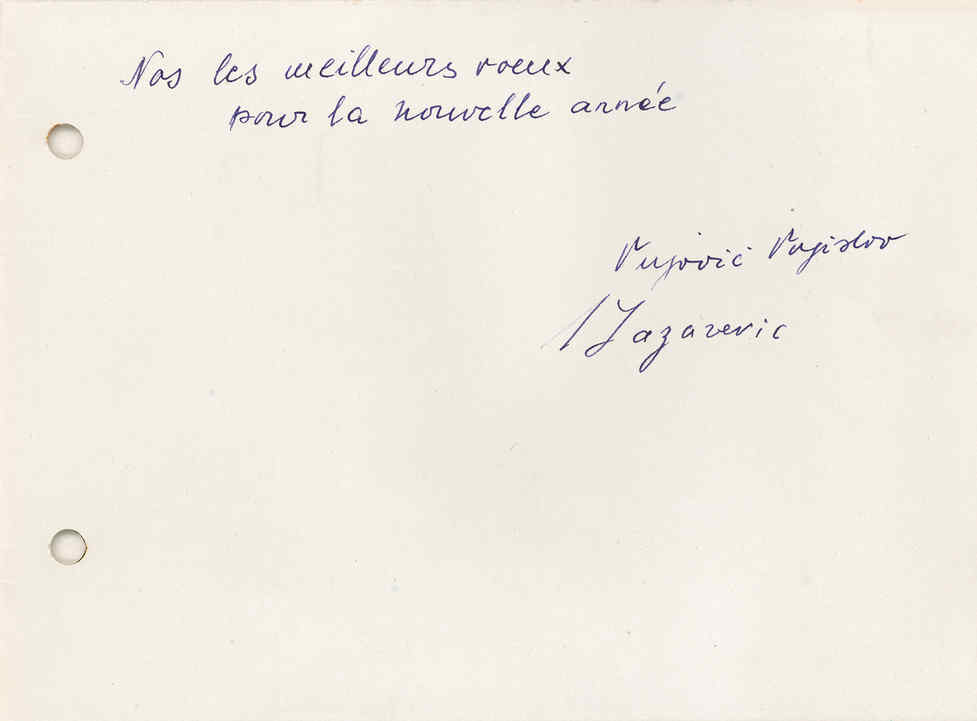 Nos les meilleurs voeux
pour la nouvelle année
Vujović Vojislav
Lazarevic